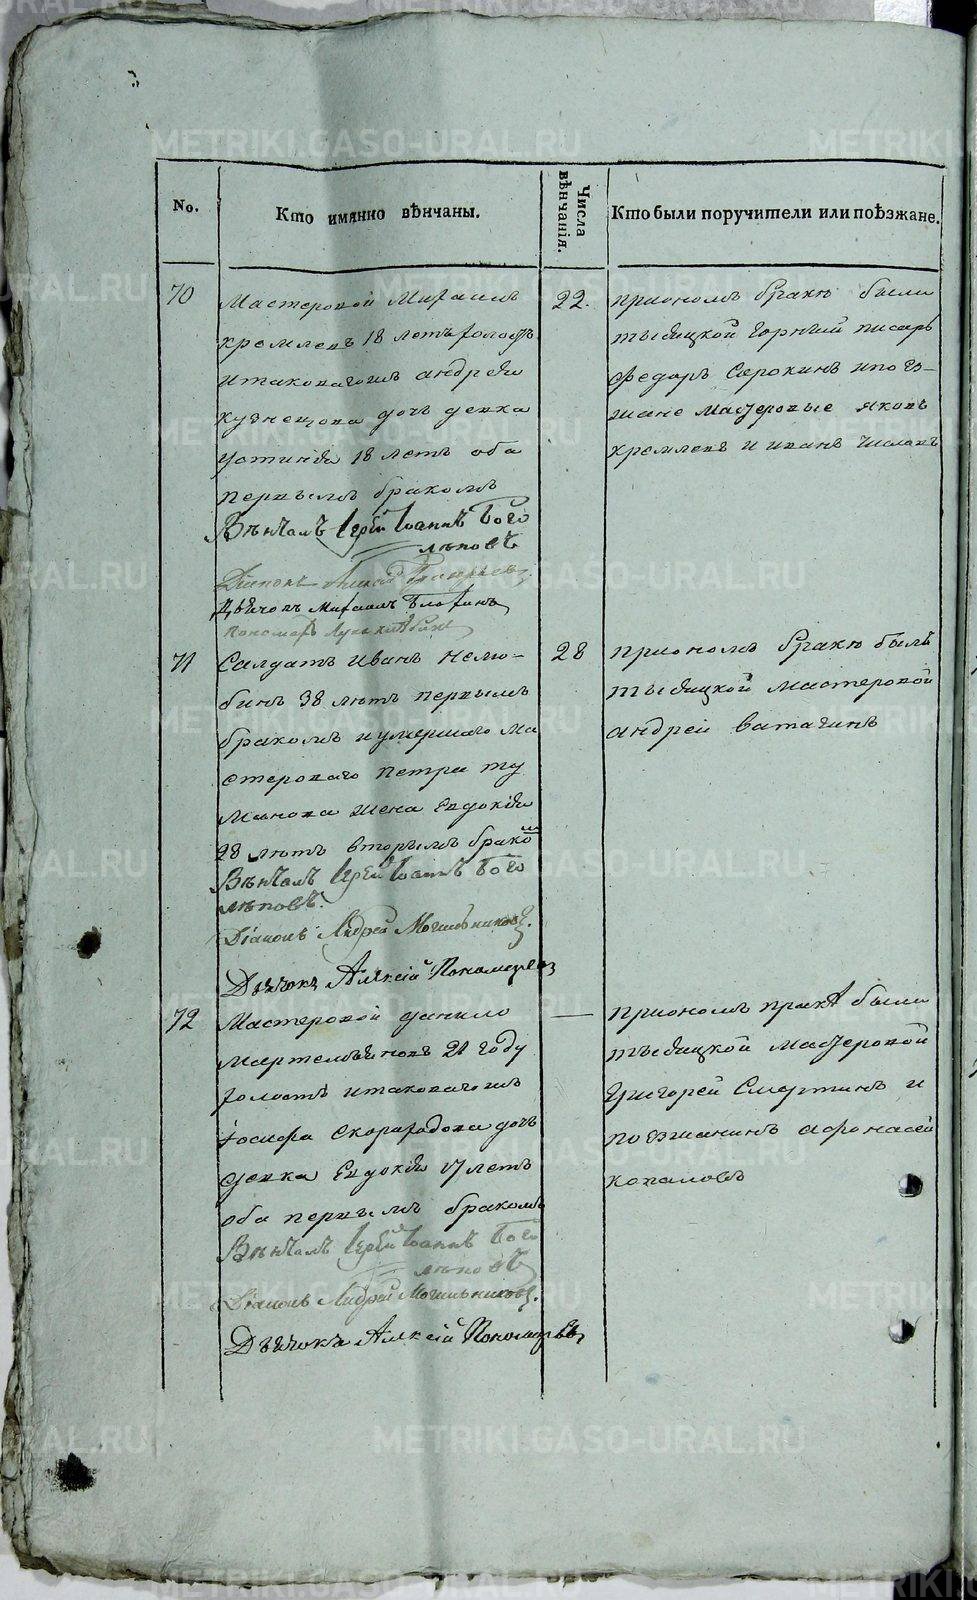 No.
Кто имянно вѣнчаны.
Числа вѣнчанія.
Кто были поручители или поѣзжане.
70
Мастеровой Михаилъ
кремлевъ 18 летъ холостъ
итаковагожъ андрея
кузнецова дочь девка
устинія 18 летъ оба
первымъ бракомъ
Вѣнчалъ Іерей Іоаннъ Бого
лѣповъ
Діаконъ Алексій
Дьячокъ Михаилъ
пономарь
22.
приономъ браке были
горный писарь
Федоръ Сорокинъ ипоез-
жане мастеровые яковъ
кремлевъ и иванъ числовъ
71
Салдатъ Иванъ Нелю-
бинъ 38 летъ первымъ
бракомъ иумершаго ма
стероваго петра ту
манова жена Евдокія
28 летъ вторымъ бракомъ
Вѣнчалъ Іерей Іоаннъ Бого
лѣповъ.
Діаконъ Андрей Могильниковъ.
Дьячокъ Алексій Пономаревъ
28
приономъ браке былъ
мастеровой
андрей ватагинъ
72
Мастеровой данило
мартемьяновъ 21 году
холостъ итаковагожъ
іосифа скороходова дочь
девка Евдокія 17 летъ
оба первымъ бракомъ
Вѣнчалъ Іерей Іоаннъ Бого
лѣповъ
Діаконъ Андрей Могильниковъ.
Дьячокъ Алексій Пономаревъ
—
приономъ браке были
мастеровой
Григорей Смертинъ и
поезжанинъ афонасей
копаловъ
METRIKI.GASO-URAL.RU